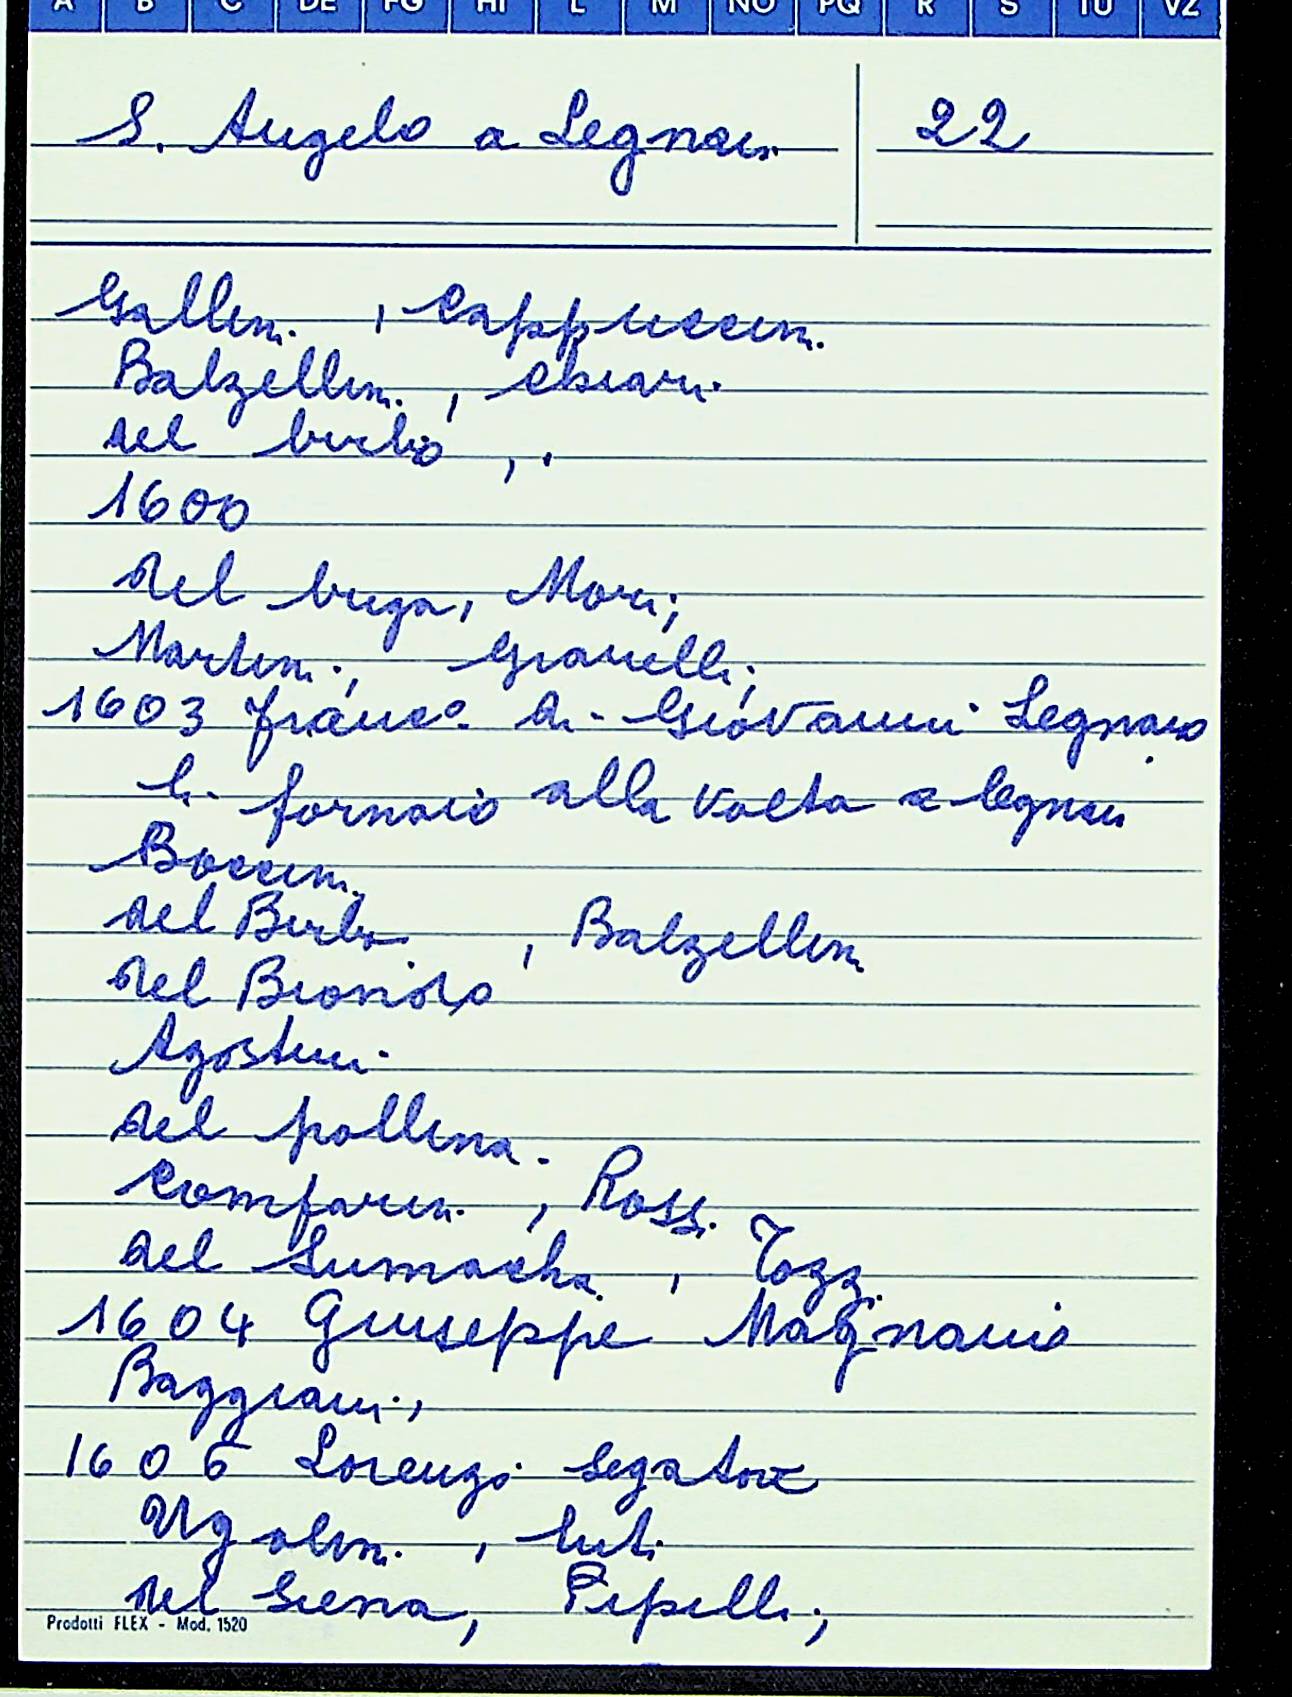 A B C DE FG HI L M NO PQ R S TU VZ
S. Angelo a Legnaia 22
Gallini, Cappuccini
Balzellini, Chiari
del birbo, .
1600
del buga, Mori;
Martini; Gianelli;
1603 franc°. di Giovanni Legnaio
li fornaio alla volta a legnaia
Boccini
del Birbo, Balzellini
del Biondo
Agostini
del pollina.
Comparini, Rossi.
del Lumacha, Tozzi
1604 Giuseppe Magnano
Baggiani,
1606 Lorenzo segatore
Ugolini, luti
del Siena, Pipelli;
Prodotti FLEX - Mod. 1520